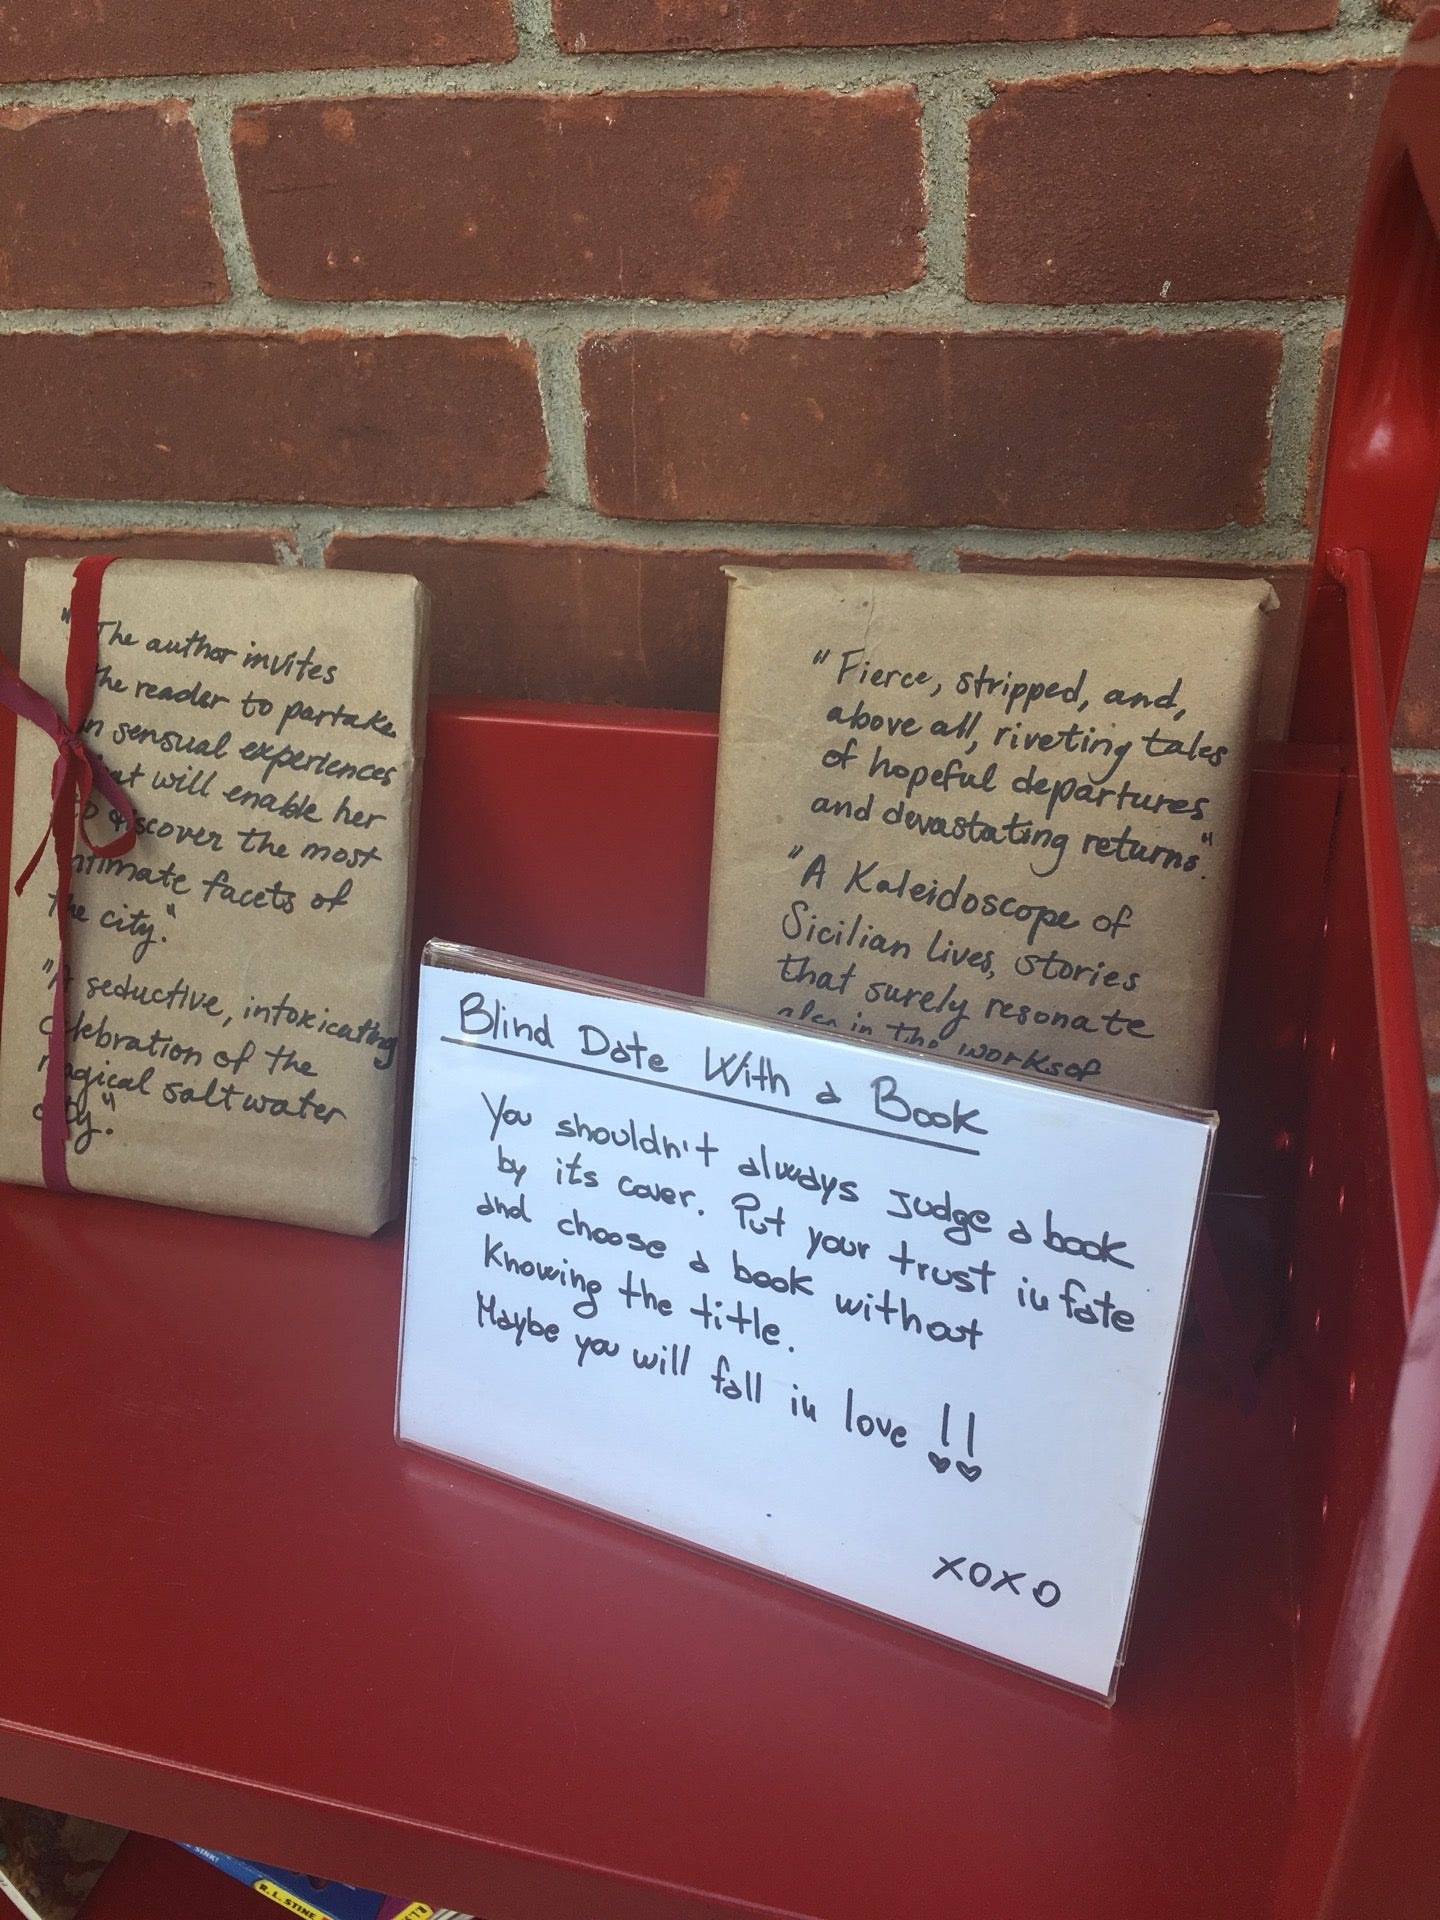 "The author invites
the reader to partake
in sensual experiences
that will enable her
to discover the most
intimate facets of
the city."
"A seductive, intoxicating
celebration of the
magical saltwater
city."
"Fierce, stripped, and,
above all, riveting tales
of hopeful departures
and devastating returns."
"A Kaleidoscope of
Sicilian lives, stories
that surely resonate
also in the works of
Blind Date With a Book
You shouldn't always judge a book
by its cover. Put your trust in fate
and choose a book without
knowing the title.
Maybe you will fall in love !!
XOXO
SINK!
R.L. STINE